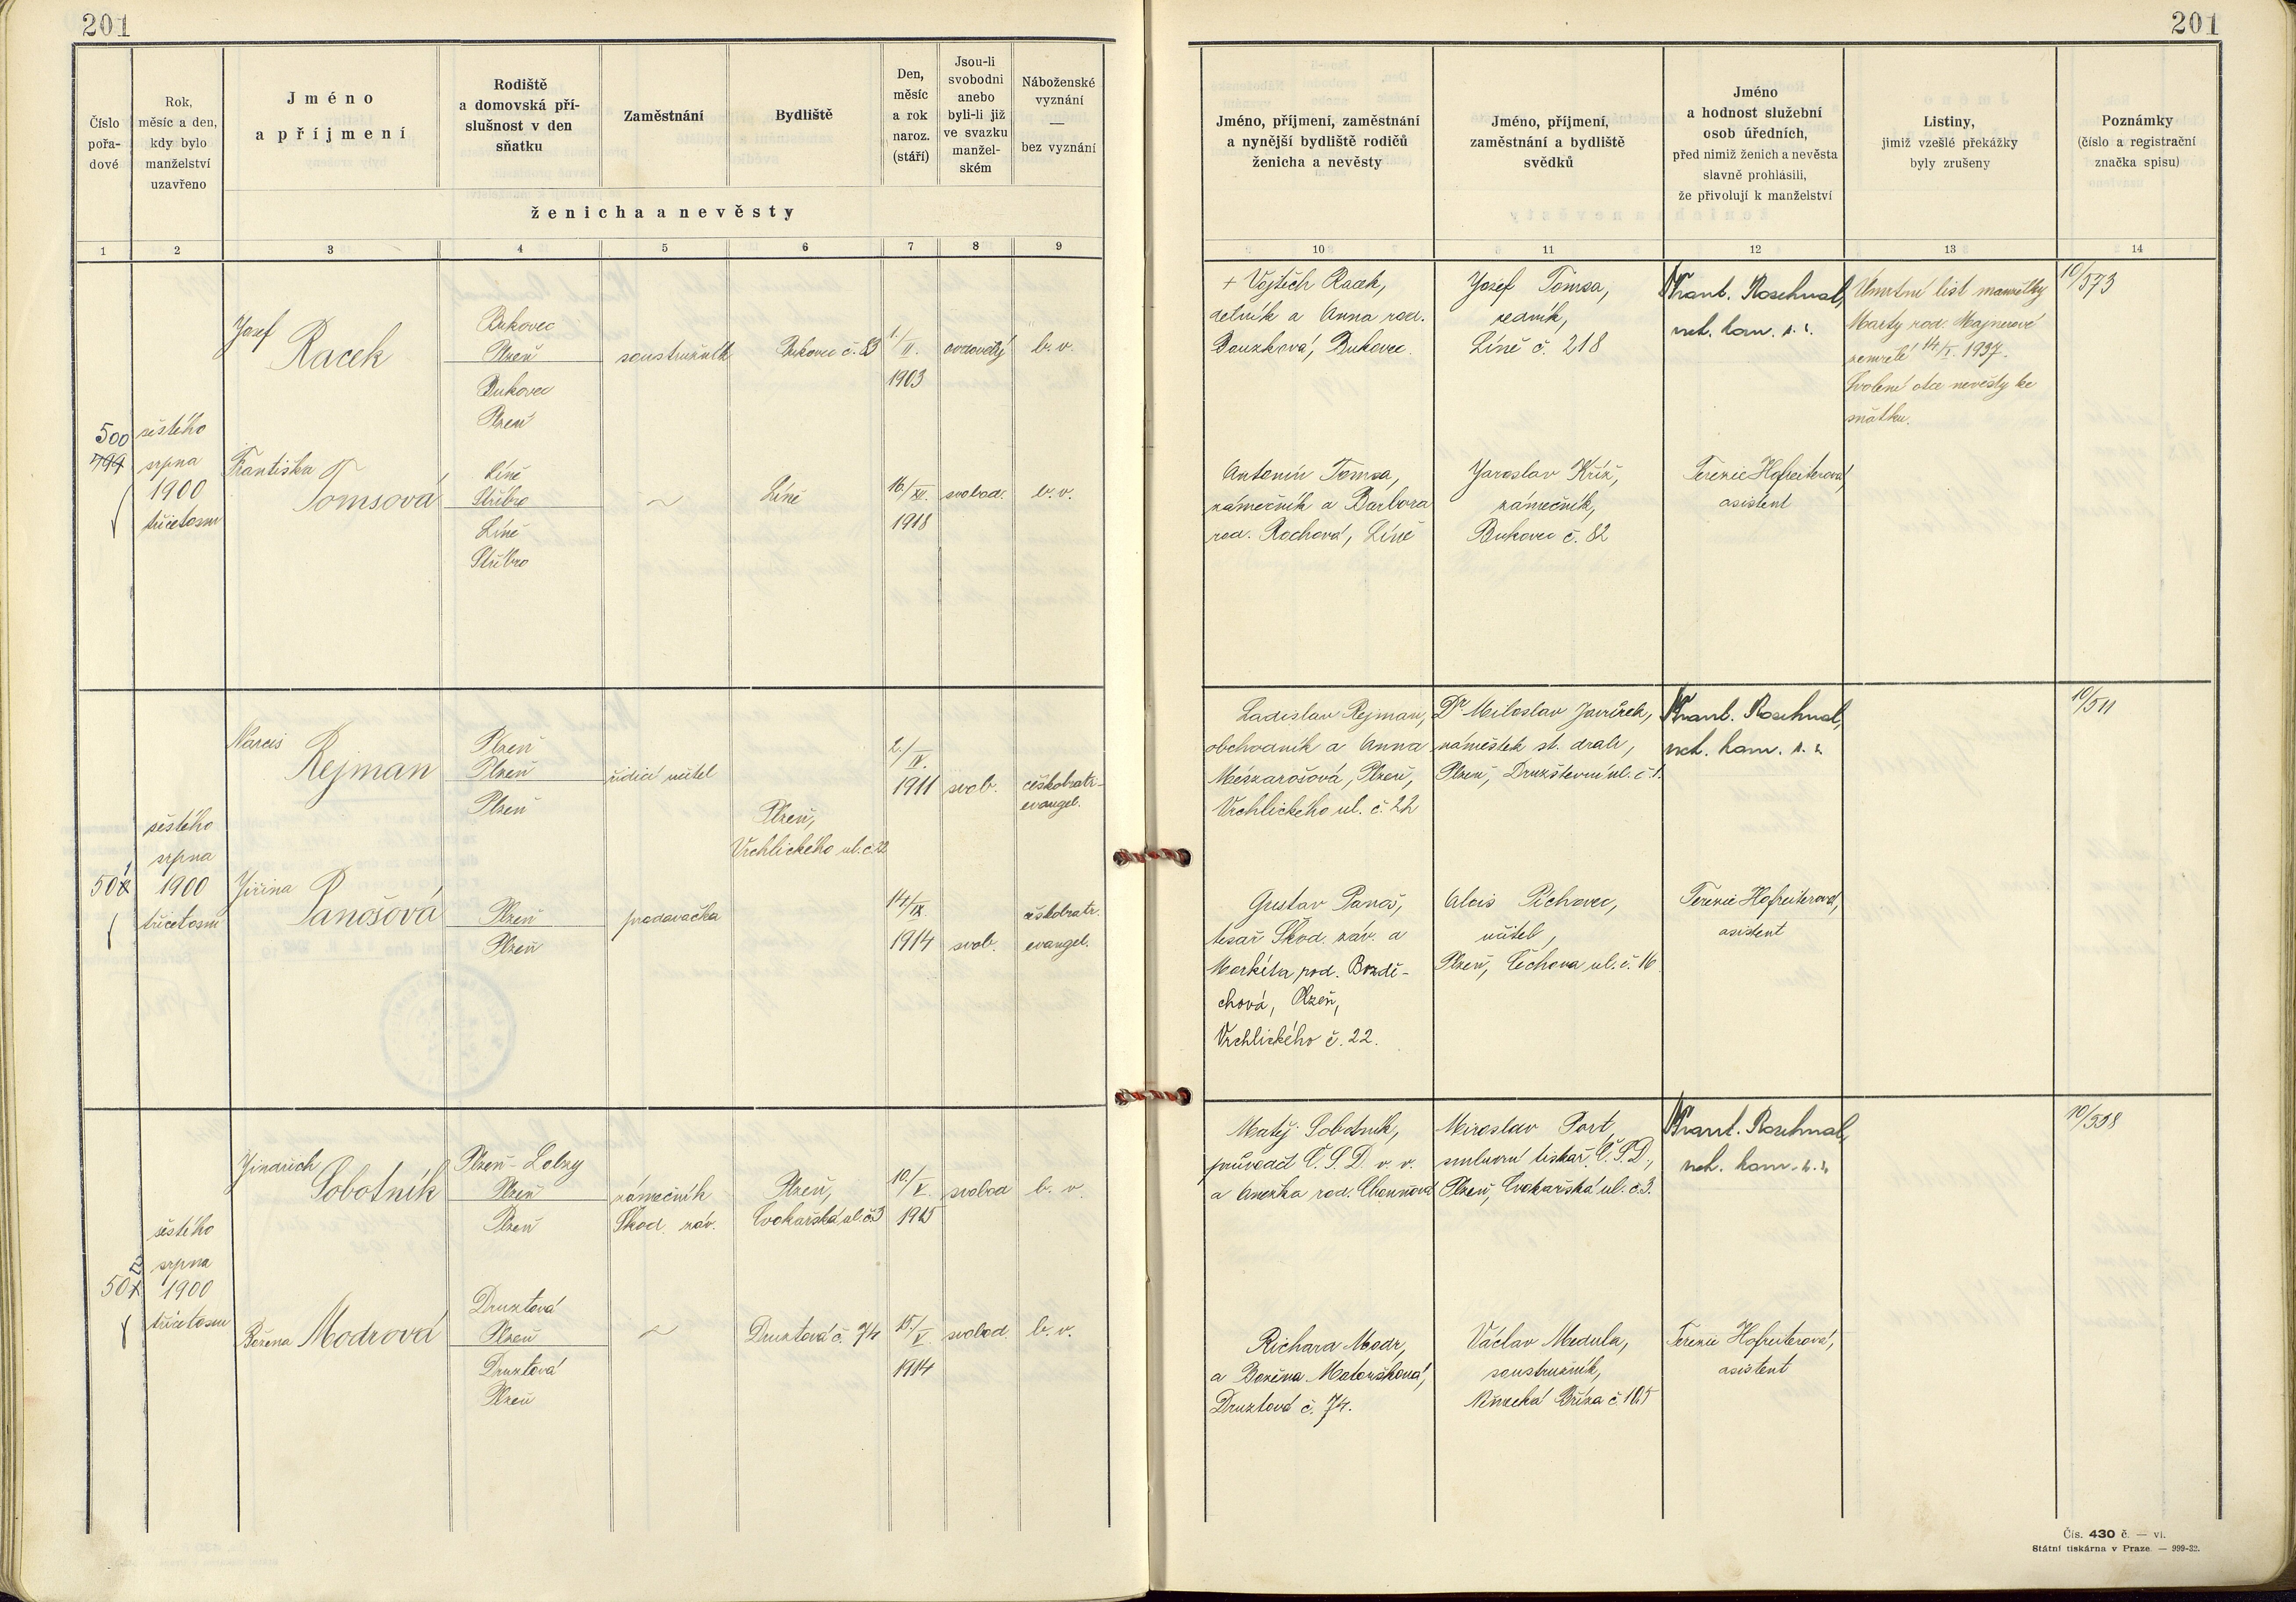 201
201
Číslo
pořa-
dové
Rok,
měsíc a den,
kdy bylo
manželství
uzavřeno
Jméno
a příjmení
Rodiště
a domovská pří-
slušnost v den
sňatku
Zaměstnání
Bydliště
Den,
měsíc
a rok
naroz.
(stáří)
Jsou-li
svobodni
anebo
byli-li již
ve svazku
manžel-
ském
Náboženské
vyznání
—
bez vyznání
ženicha a nevěsty
Jméno, příjmení, zaměstnání
a nynější bydliště rodičů
ženicha a nevěsty
Jméno, příjmení,
zaměstnání a bydliště
svědků
Jméno
a hodnost služební
osob úředních,
před nimiž ženich a nevěsta
slavně prohlásili,
že přivolují k manželství
Listiny,
jimiž vzešlé překážky
byly zrušeny
Poznámky
(číslo a registrační
značka spisu)
1 2 3 4 5 6 7 8 9
10 11 12 13 14
500
499
šestého
srpna
1900
třicetosm
Josef
Racek
Bukovec
Plzeň
Bukovec
Plzeň
soustružník
Bukovec č. 83
1./II.
1903
ovdovělý
b. v.
Františka
Tomsová
Líně
Stříbro
Líně
Stříbro
~
Líně
16/XII.
1918
svobod.
b. v.
+ Vojtěch Racek,
dělník a Anna rod.
Bouzková, Bukovec.
Josef Tomsa,
zedník,
Líně č. 218
Frant. Roschnal,
Úmrtní list manželky
Marty rod. Majnerové
zemřelé 14/X. 1937.
Svolení otce nevěsty ke
sňatku.
10/573
Antonín Tomsa,
zámečník a Barbora
rod. Rochová, Líně
Jaroslav Kříž,
zámečník,
Bukovec č. 82
Terezie Hofreiterová,
asistent
501
šestého
srpna
1900
třicetosm
Narcis
Rejman
Plzeň
Plzeň
Plzeň
řídící učitel
Plzeň,
Vrchlického ul. č. 22
2./IV.
1911
svob.
českobratr-
evangel.
Jiřina
Panošová
Plzeň
Plzeň
prodavačka
14/IX.
1914
svob.
českobratr.
evangel.
Ladislav Rejman,
obchodník a Anna
Mészarošová, Plzeň,
Vrchlického ul. č. 22
Dr Miloslav Javůrek,
náměstek st. drah,
Plzeň, Družstevní ul. č. 1.
Frant. Roschnal,
10/511
Gustav Panoš,
tesař Škod. záv. a
Markéta rod. Bozdě-
chová, Plzeň,
Vrchlického č. 22.
Alois Pěchovec,
učitel,
Plzeň, Čechova ul. č. 16
Terezie Hofreiterová,
asistent
502
šestého
srpna
1900
třicetosm
Jindřich
Sobotník
Plzeň - Lobzy
Plzeň
Plzeň
zámečník
Škod. záv.
Plzeň,
Cvokařská ul. č. 3
10./V.
1915
svobod
b. v.
Božena Modrová
Druztová
Plzeň
Druztová
Plzeň
~
Druztová č. 74
15./V
1914
svobod.
b. v.
Matěj Sobotník,
průvodčí Č. S. D. v. v.
a Anežka rod.
Miroslav Port,
smluvní tiskař Č. S. D.,
Plzeň, Cvokařská ul. č. 3.
Frant. Roschnal,
10/558
Richard Modr,
a Božena Matoušková,
Druztová č. 74.
Václav Medula,
soustružník,
Německá Bříza č. 105
Terezie Hofreiterová,
asistent
Čís. 430 č. — vi.
Státní tiskárna v Praze. — 999-32.